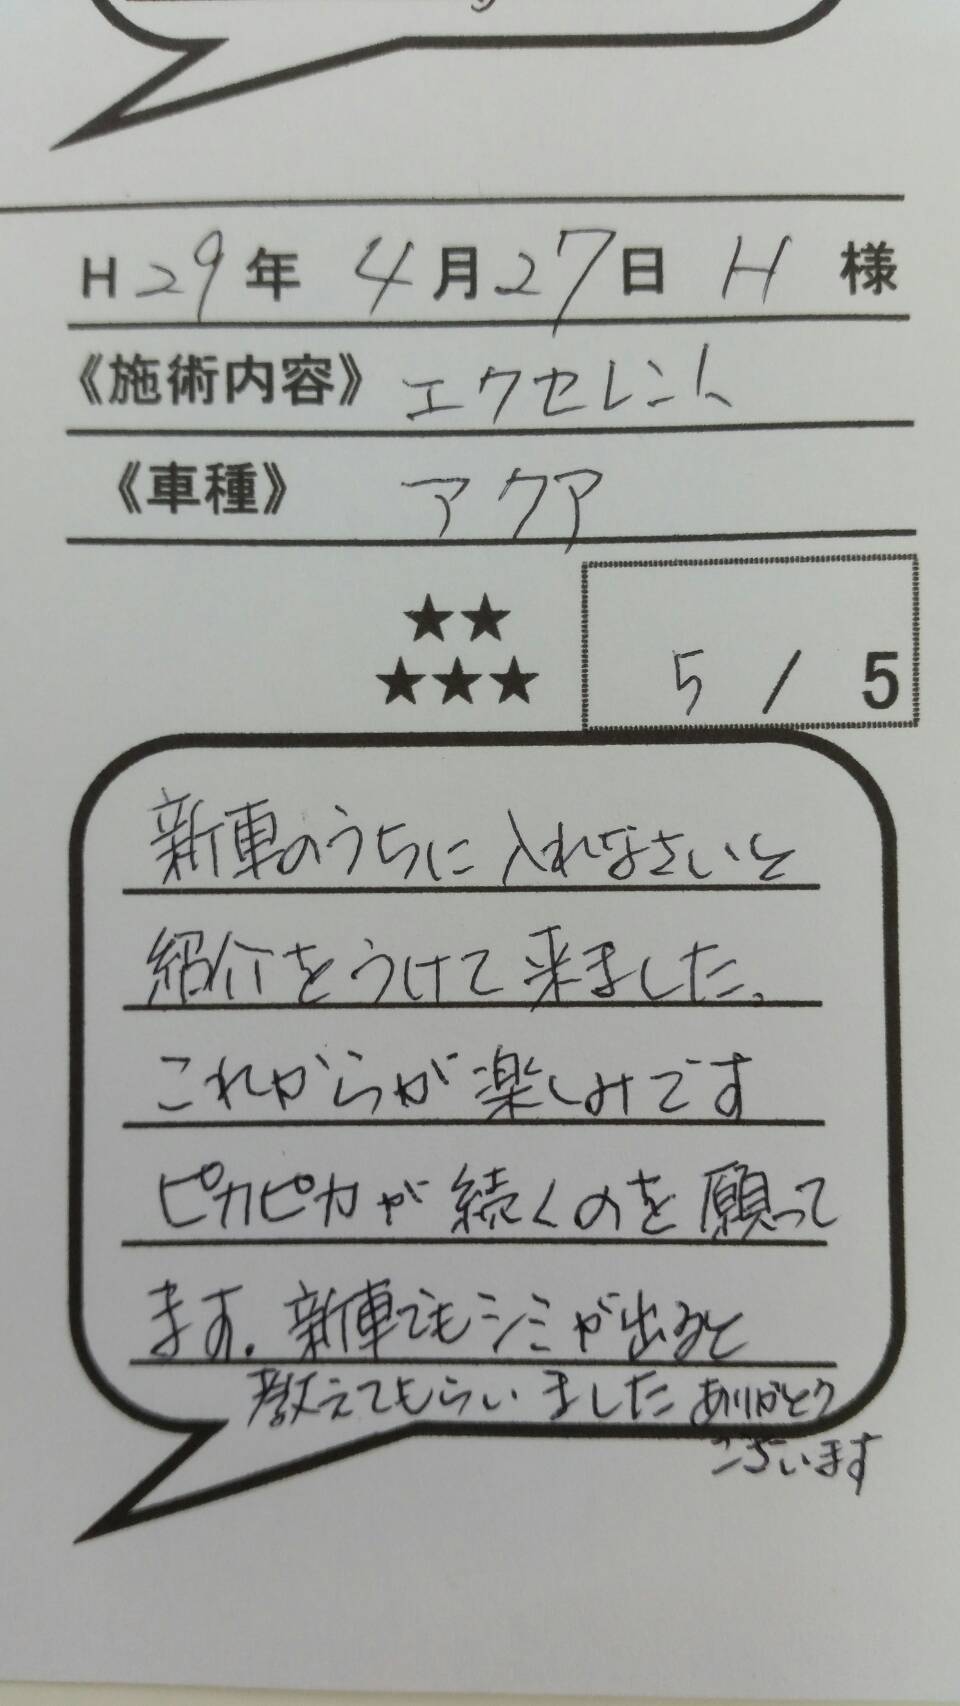 H29年 4月27日 H 様
《施術内容》 エクセレント
《車種》 アクア
★★
★★★
5 / 5
新車のうちに入れなさいと
紹介をうけて来ました。
これからが楽しみです
ピカピカが続くのを願って
ます。新車でもシミが出ると
教えてもらいました ありがとう
ございます